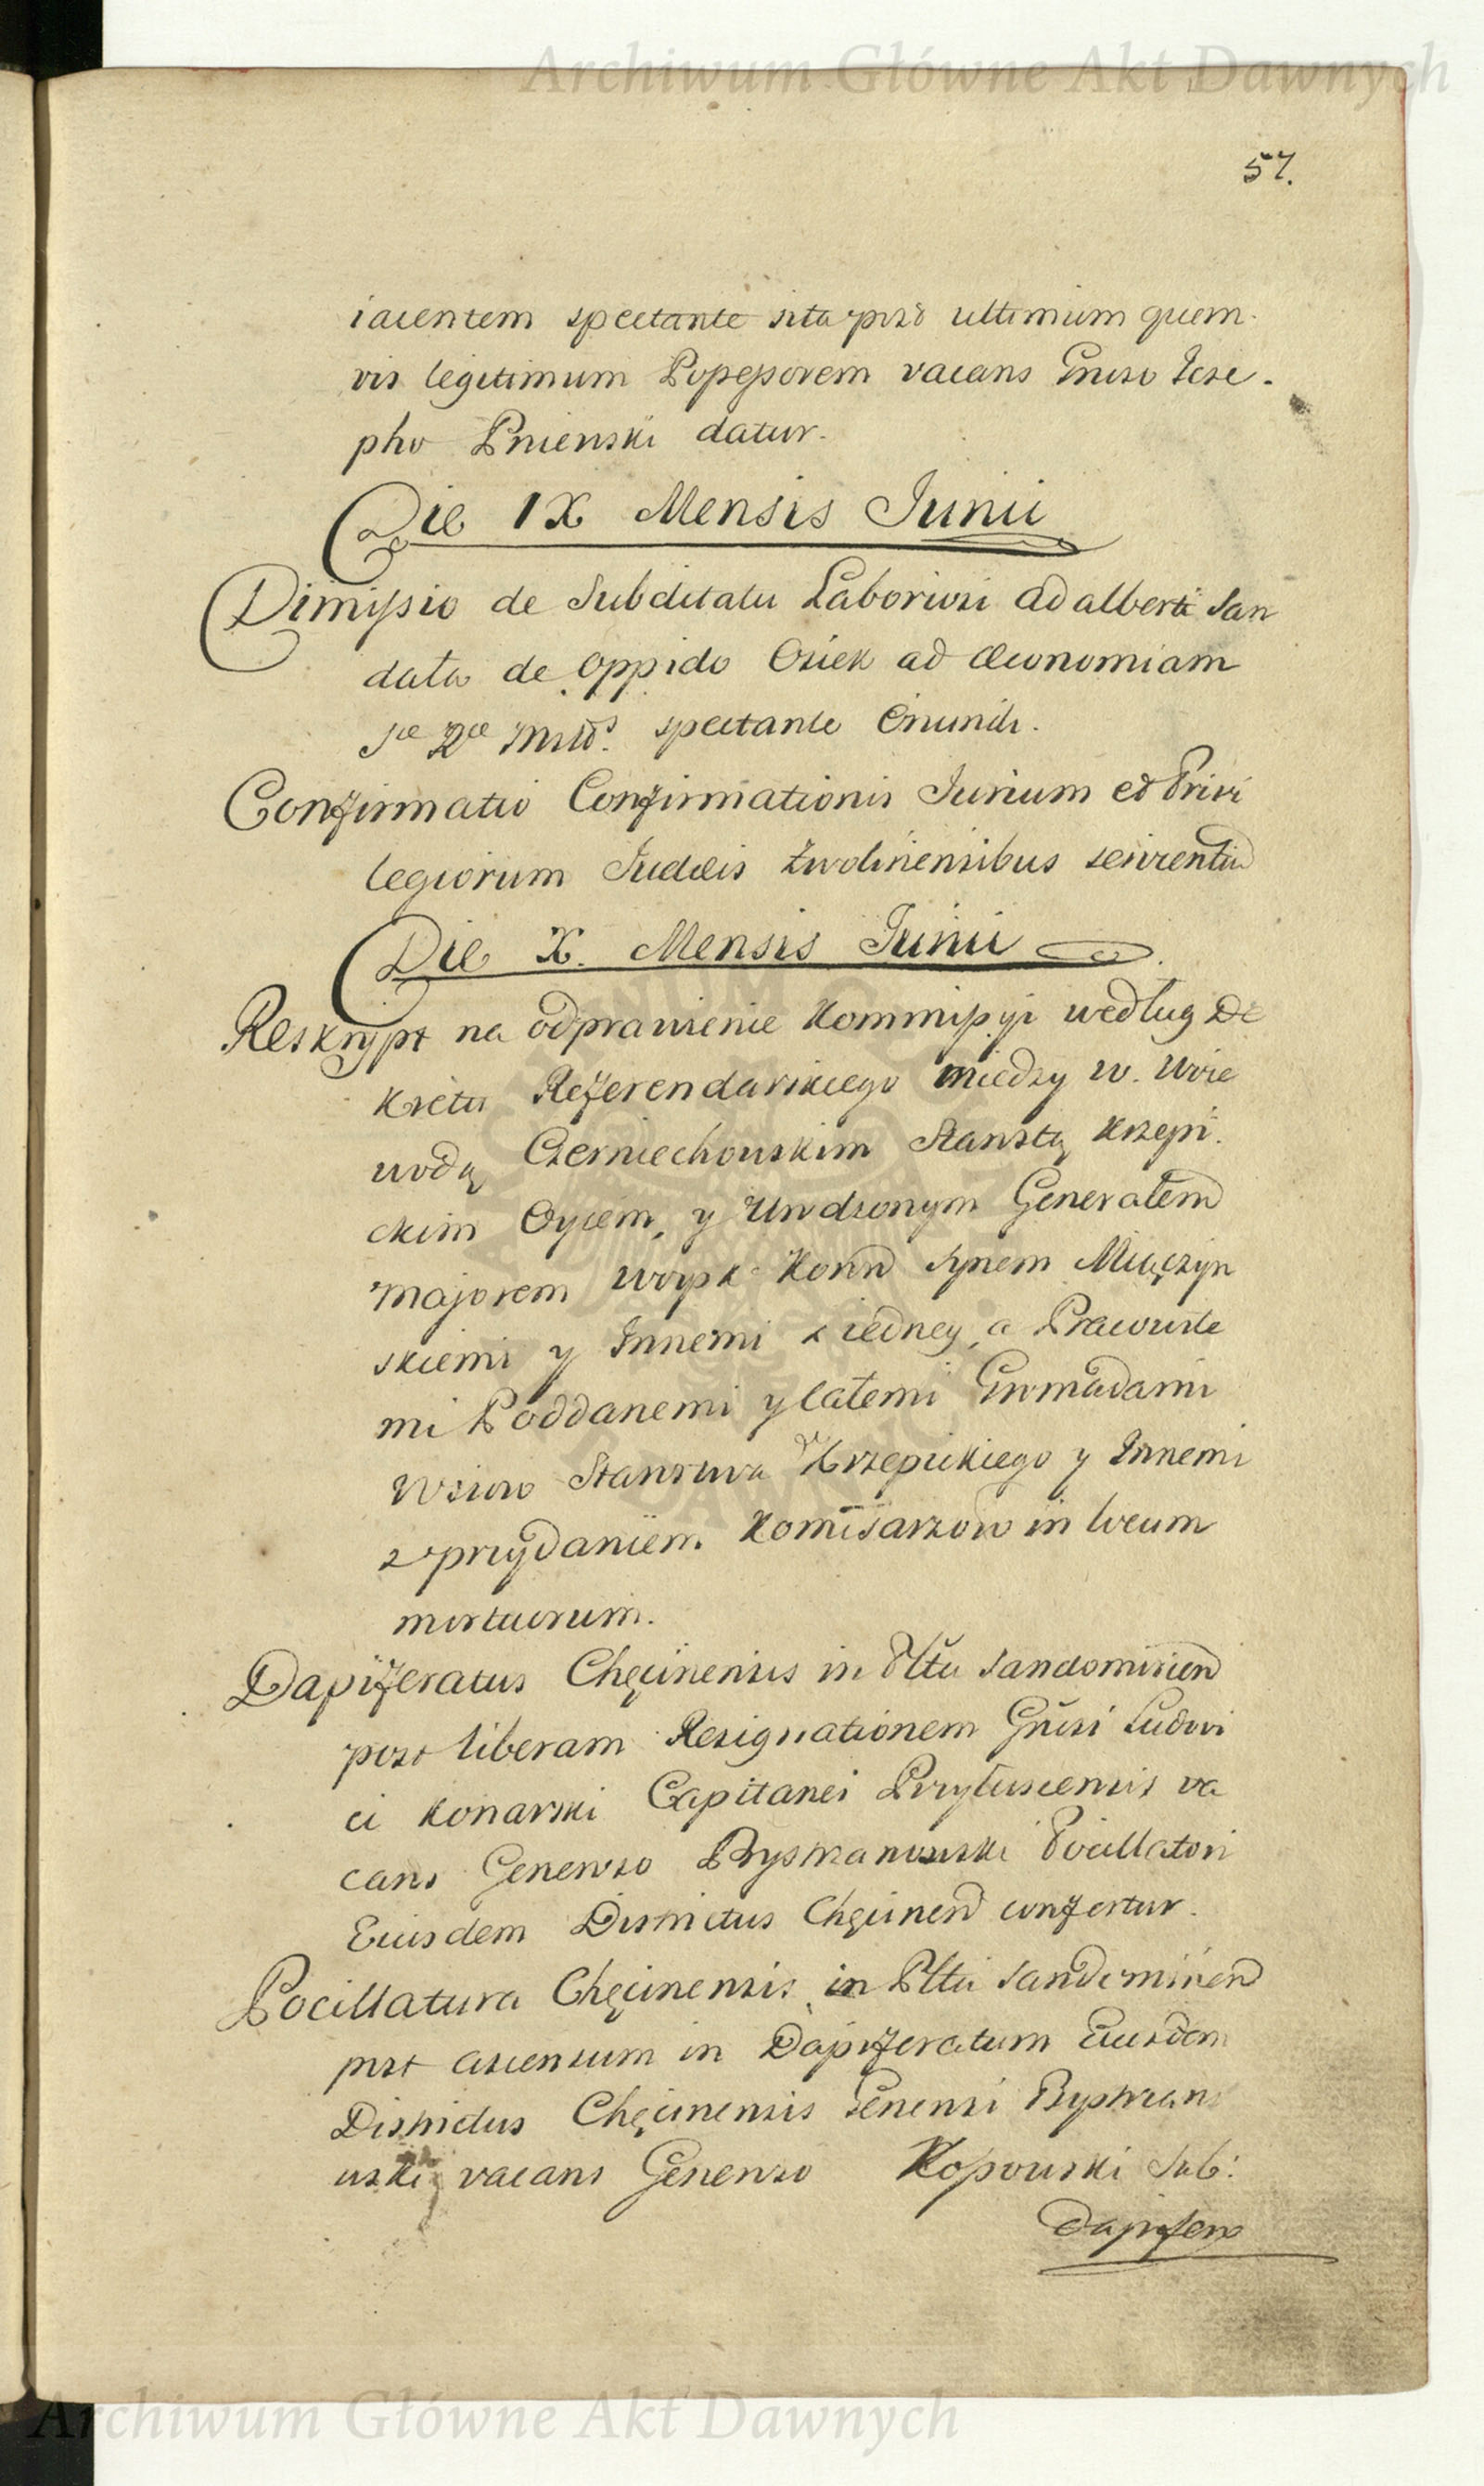 Archiwum Główne Akt Dawnych
57.
iacentem spectante sita post ultimum quem-
vis legitimum Possessorem vacans Gnuso Jose-
pho Pnienski datur.
Die IX Mensis Junii
Dimissio de Subditatu Laboriosi Adalberti San
data de Oppido Osiek ad Œconomiam
spectante
Confirmatio Confirmationis Jurium et Privi
legiorum Judæis Zwolinensibus servientiu
Die X. Mensis Junii
Reskrypt na odprawienie Kommissyi według De
kretu Referendarskiego między W. Woie
wodą Czerniechowskim Starostą Krzepi
ckim Oycem, y Urodzonym Generałem
Majorem Woysk Konn Synem Miączyn
skiemi y Innemi z iedney, a Pracowite
mi Poddanemi y całemi Gromadami
Wsiow Starostwa Krzepickiego y Innemi
z przydaniem Komisarzow in locum
mortuorum.
Dapiferatus Chęcinensis in Pltu Sandomirien
post liberam Resignationem Gnusi Ludovi
ci Konarski Capitanei va
cans Generoso Bystrzanowski Pocillatori
Eiusdem Districtus Chęcinen confertur.
Pocillatura Chęcinensis in Pltu Sandomirien
post ascensum in Dapiferatum Eiusdem
Districtus Chęcinensis Generosi Bystrzano
wski vacans Generoso Kossowski Sub:
Dapifero
Archiwum Główne Akt Dawnych